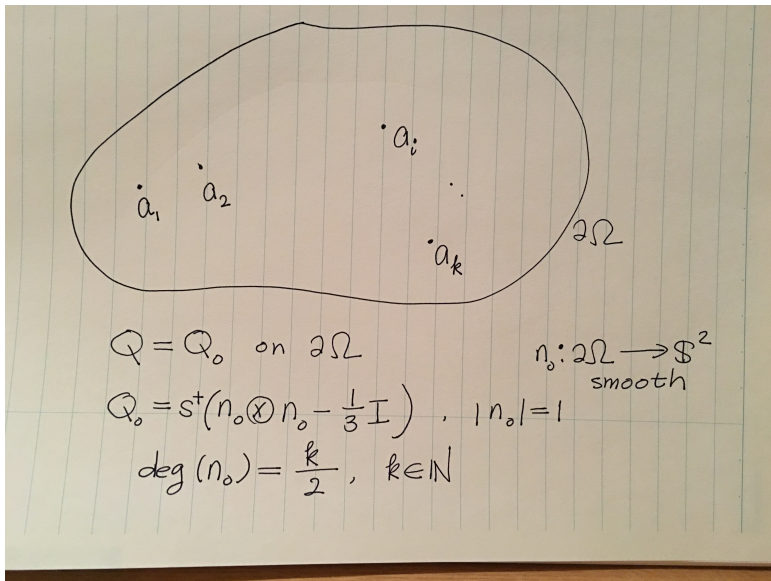 a₁
a₂
aᵢ
a_k
∂Ω
Q = Q₀ on ∂Ω
n₀: ∂Ω → 𝕊²
smooth
Q₀ = s⁺(n₀⊗n₀ − 1/3 I), |n₀| = 1
deg(n₀) = k/2, k∈ℕ